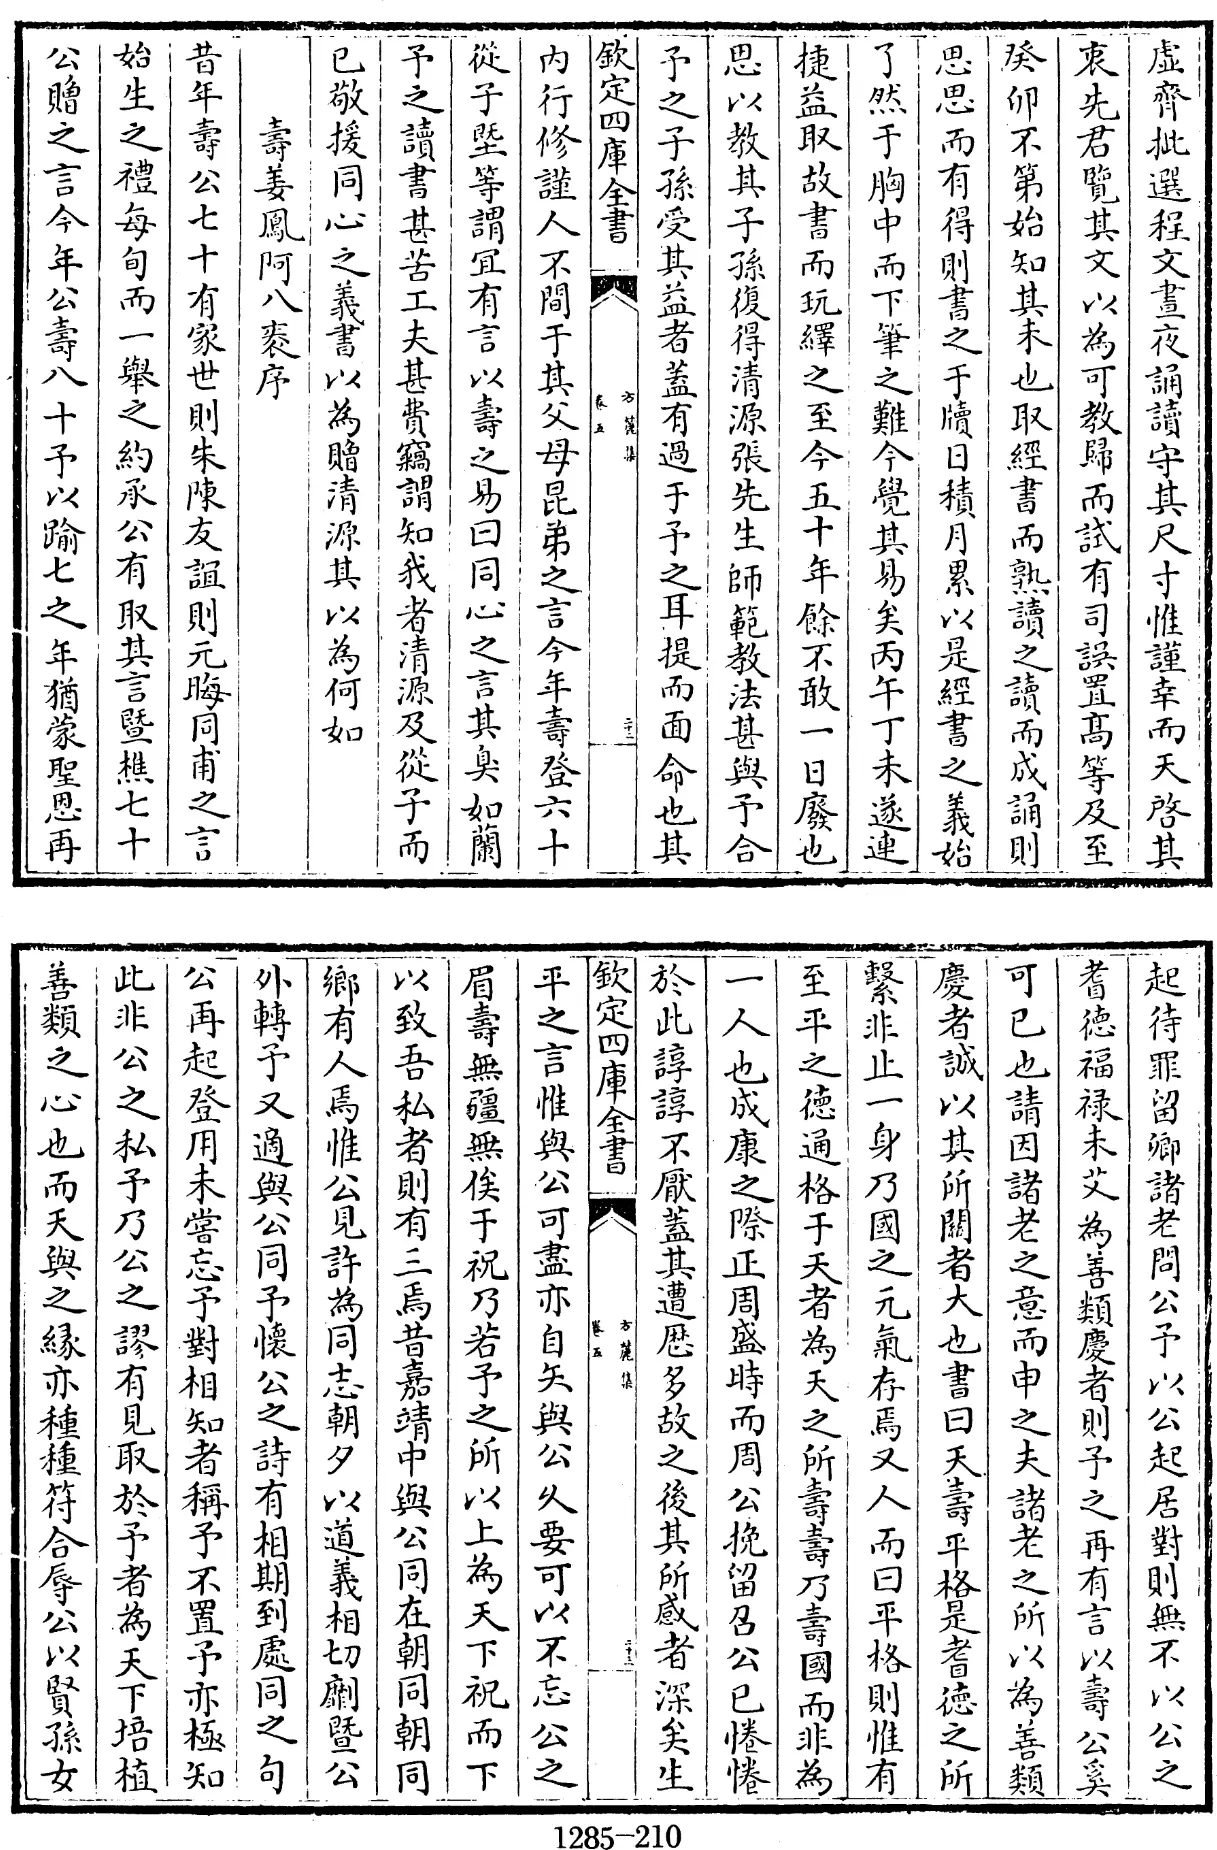 虛齊批選程文晝夜誦讀守其尺寸惟謹幸而天啓其
衷先君覽其文以為可教歸而試有司誤置髙等及至
癸卯不第始知其未也取經書而熟讀之讀而成誦則
思思而有得則書之于牘日積月累以是經書之義始
了然于胸中而下筆之難今覺其易矣丙午丁未遂連
捷益取故書而玩繹之至今五十年餘不敢一日廢也
思以教其子孫復得清源張先生師範教法甚與予合
予之子孫受其益者蓋有過于予之耳提而面命也其
欽定四庫全書
方麓集
卷五
二十二
内行修謹人不間于其父母昆弟之言今年壽登六十
從子塈等謂宜有言以壽之易曰同心之言其臭如蘭
予之讀書甚苦工夫甚費竊謂知我者清源及從子而
已敬援同心之義書以為贈清源其以為何如
壽姜鳳阿八袠序
昔年壽公七十有家世則朱陳友誼則元晦同甫之言
始生之禮每旬而一舉之約承公有取其言暨樵七十
公贈之言今年公壽八十予以踰七之年猶蒙聖恩再
起待罪留卿諸老問公予以公起居對則無不以公之
耆德福禄未艾為善類慶者則予之再有言以壽公奚
可已也請因諸老之意而申之夫諸老之所以為善類
慶者誠以其所關者大也書曰天壽平格是耆德之所
繫非止一身乃國之元氣存焉又人而曰平格則惟有
至平之德通格于天者為天之所壽壽乃壽國而非為
一人也成康之際正周盛時而周公挽留召公已惓惓
於此諄諄不厭蓋其遭歴多故之後其所感者深矣生
欽定四庫全書
方麓集
卷五
二十三
平之言惟與公可盡亦自矢與公久要可以不忘公之
眉壽無疆無俟于祝乃若予之所以上為天下祝而下
以致吾私者則有三焉昔嘉靖中與公同在朝同朝同
鄉有人焉惟公見許為同志朝夕以道義相切劘暨公
外轉予又適與公同予懷公之詩有相期到處同之句
公再起登用未嘗忘予對相知者稱予不置予亦極知
此非公之私予乃公之謬有見取於予者為天下培植
善類之心也而天與之縁亦種種符合辱公以賢孫女
1285-210